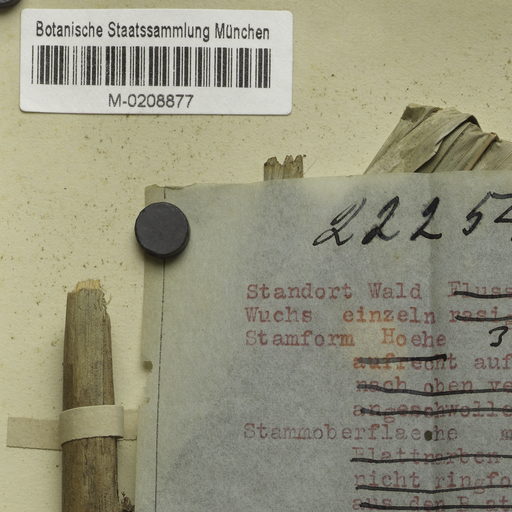 Botanische Staatssammlung München
M-0208877
2225
Standort Wald Fluss
Wuchs einzeln rasig
Stamform Hoehe 3
aufrecht auf
nach oben ve
angeschwolle
Stammoberflaeche m
Blattnarben
nicht ringfo
aus den Blat